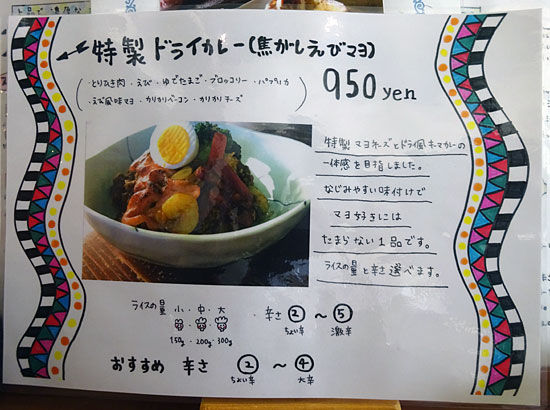 特製 ドライカレー(焦がしえびマヨ)
(・とりひき肉・えび・ゆでたまご・ブロッコリー・パプリカ
・えび風味マヨ・カリカリベーコン・カリカリチーズ)
950yen
特製マヨネーズとドライ風キーマカレーの
一体感を目指しました。
なじみやすい味付けで
マヨ好きには
たまらない1品です。
ライスの量と辛さ選べます。
ライスの量 小・中・大
150g・200g・300g
・辛さ ② ～ ⑤
ちょい辛 激辛
おすすめ 辛さ ② ～ ④
ちょい辛 大辛